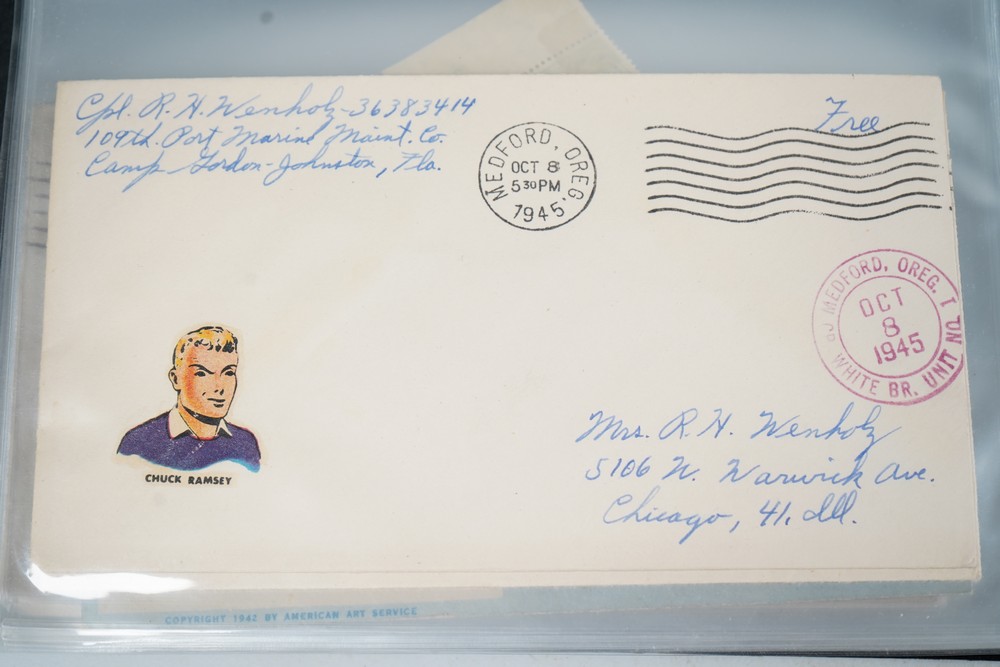 Cpl. R. H. Wenholz-36383414
109th. Port Marine Maint. Co.
Camp Gordon-Johnston, Fla.
Free
MEDFORD, OREG.
OCT 8
5 30 PM
1945
MEDFORD, OREG.
WHITE BR. UNIT NO. 1
OCT
8
1945
CHUCK RAMSEY
Mrs. R. H. Wenholz
5106 W. Warwick Ave.
Chicago, 41. Ill.
COPYRIGHT 1942 BY AMERICAN ART SERVICE